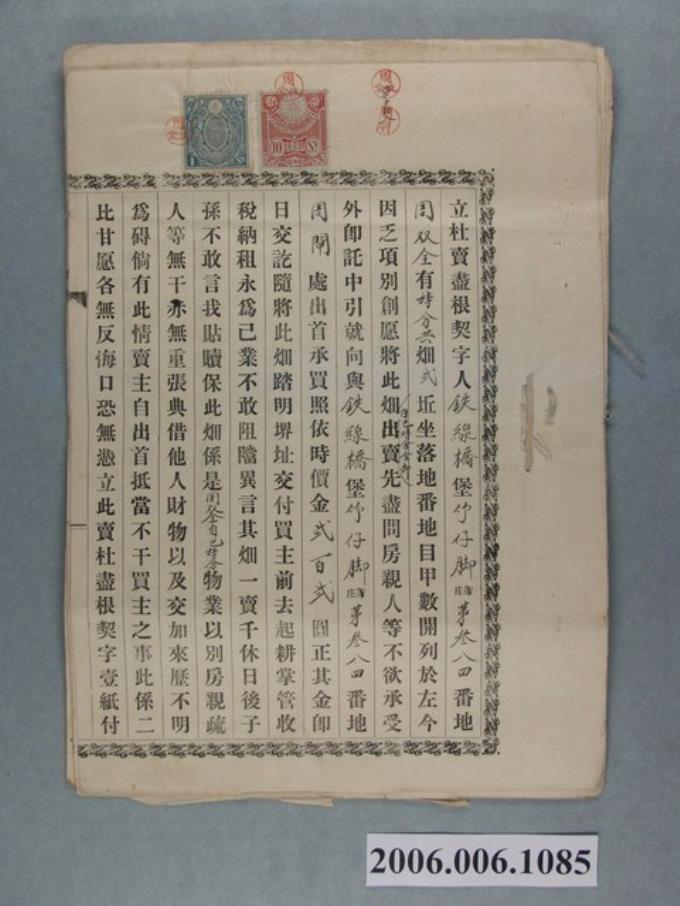 立杜賣盡根契字人鉄線橋堡竹仔脚庄第叁八四番地
周双全有持分共畑弍坵坐落地番地目甲數開列於左今
因乏項別創愿將此畑出賣先盡問房親人等不欲承受
外卽託中引就向與鉄線橋堡竹仔脚庄第叁八四番地
周閙處出首承買照依時價金弍百弍圓正其金卽
日交訖隨將此畑踏明堺址交付買主前去起耕掌管收
稅納租永爲己業不敢阻隂異言其畑一賣千休日後子
孫不敢言找貼贖保此畑係是周双全自己持分物業以別房親疏
人等無干亦無重張典借他人財物以及交加來歷不明
爲碍倘有此情賣主自出首抵當不干買主之事此係二
比甘愿各無反悔口恐無憑立此賣杜盡根契字壹紙付
10 Sn
1 Sn
2006.006.1085